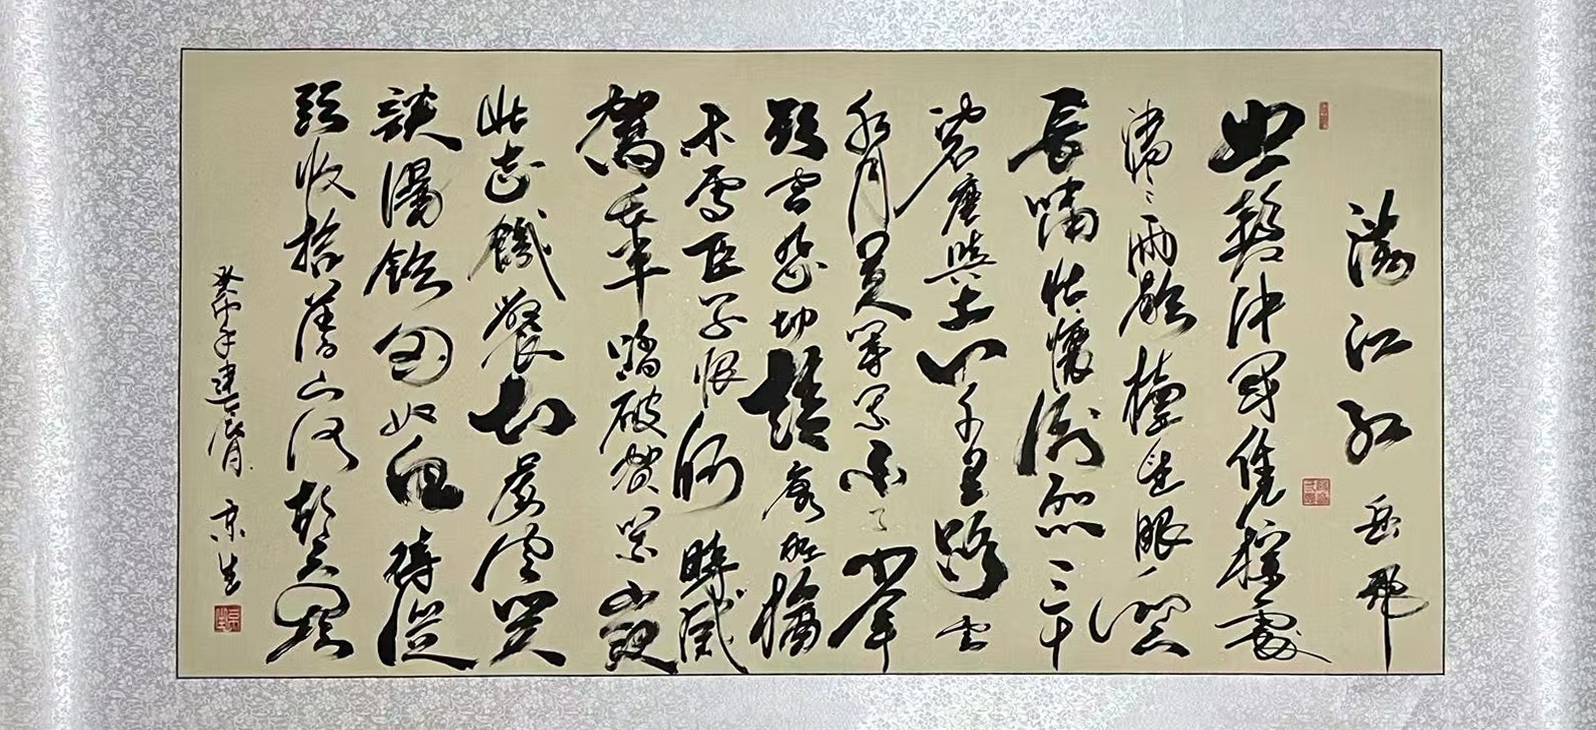 滿江紅 岳飛
怒髮沖冠凭欄處
瀟瀟雨歇擡望眼仰天
長嘯壯懷激烈三十
功名塵與土八千里路雲
和月莫等閒白了少年
頭空悲切靖康恥猶
未雪臣子恨何時滅
駕長車踏破賀蘭山缺
壯志饑餐胡虜肉笑
談渴飲匈奴血待從
頭收拾舊山河朝天闕
癸卯年建辰月 京生